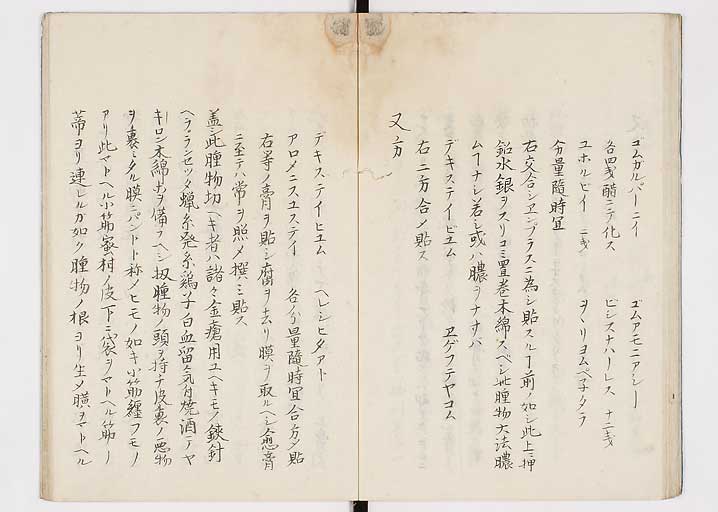 ゴムカルバーニイ　ゴムアモニアシー
各四戔醋ニテ化ス　ピシスナハーレス　十二戔
ユホルビイ　二戔　ヲヽリヨムペテタラ
分量隨時宜
右交合シヱンプラスニ為シ貼スル丁前ノ如シ此上ニ押
鉛水銀ヲスリコミ置巻木綿スベシ此腫物大法膿
ム丁ナシ若シ或ハ膿ヲナサバ
デキステイヒユム　ヱゲフテヤコム
右二方合〆貼ス
又方
デキステイヒユム　ヘレシヒタアト
アロメニスユステイ　各分量隨時宜合方〆貼
右等ノ膏ヲ貼シ腐ヲ去リ膜ヲ取ルヘシ愈膏
ニ至テハ常ヲ照〆撰ミ貼ス
蓋シ此腫物切ヘキ者ハ諸々金瘡用ユヘキモノ鋏針
ヘラランセツタ蠟糸発糸鶏子白血留氣付焼酒テヤ
キロン木綿お備フヘシ扨腫物ノ頭ヲ持チ皮裏ノ悪物
ヲ裏ミタル膜ニバンドト称ノヒモノ如キ小筋纏フモノ
アリ此マトヘル小筋蜜村ノ皮下ニ袋ヲマトヘル筋ノ
蒂ヨリ連レルガ如ク腫物ノ根ヨリ生〆膜ヲマトヘル